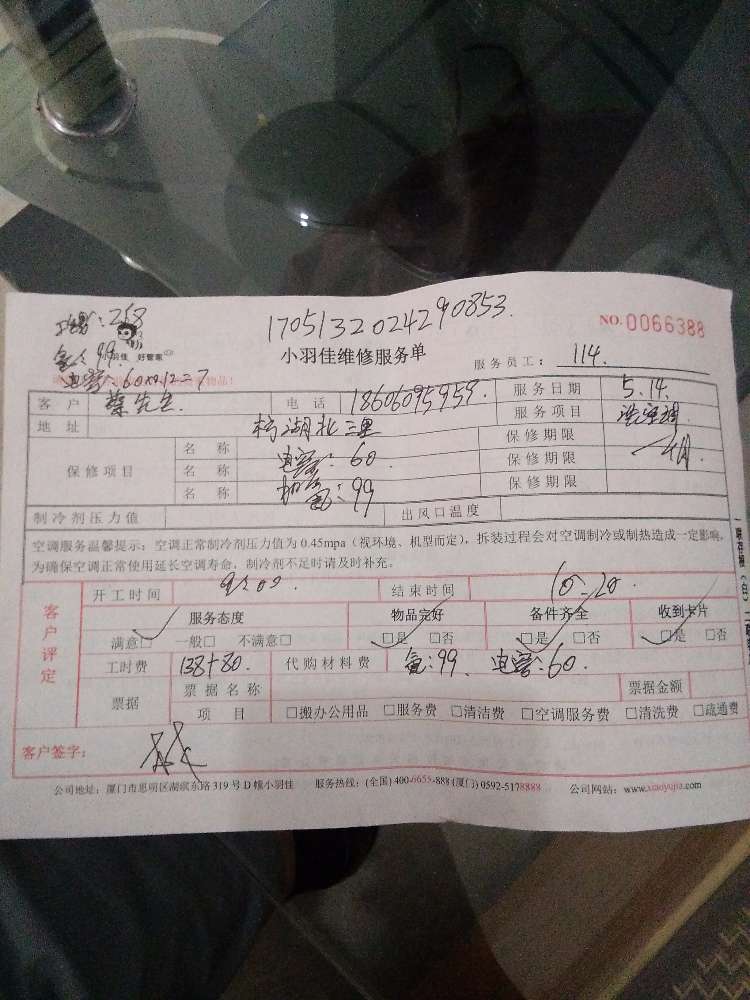 ：258
1705132024290853.
NO.0066388
小羽佳 好管家
：99.
小羽佳维修服务单
服务员工： 114.
电容：60×0.12=7
物品！
客户 蔡先生. 电话 18606095959. 服务日期 5.14.
地址 湖北三里 服务项目
保修项目
名称 电容：60 保修期限
名称 氟：99 保修期限 一月.
名称 保修期限
制冷剂压力值 出风口温度
空调服务温馨提示：空调正常制冷剂压力值为 0.45mpa（视环境、机型而定），拆装过程会对空调制冷或制热造成一定影响，
为确保空调正常使用延长空调寿命，制冷剂不足时请及时补充。
客户评定
开工时间 结束时间 10:20
服务态度 物品完好 备件齐全 收到卡片
满意□ 一般□ 不满意□ □是 □否 □是 □否 □是 □否
工时费 138+80. 代购材料费 氟：99 电容：60.
票据 票据名称 票据金额
项目 □搬办公用品 □服务费 □清洁费 □空调服务费 □清洗费 □疏通费
客户签字：
公司地址：厦门市思明区湖滨东路 319 号 D 幢小羽佳 服务热线：(全国) 400-6655-888 (厦门) 0592-5178888 公司网站：www.xiaoyujia.com